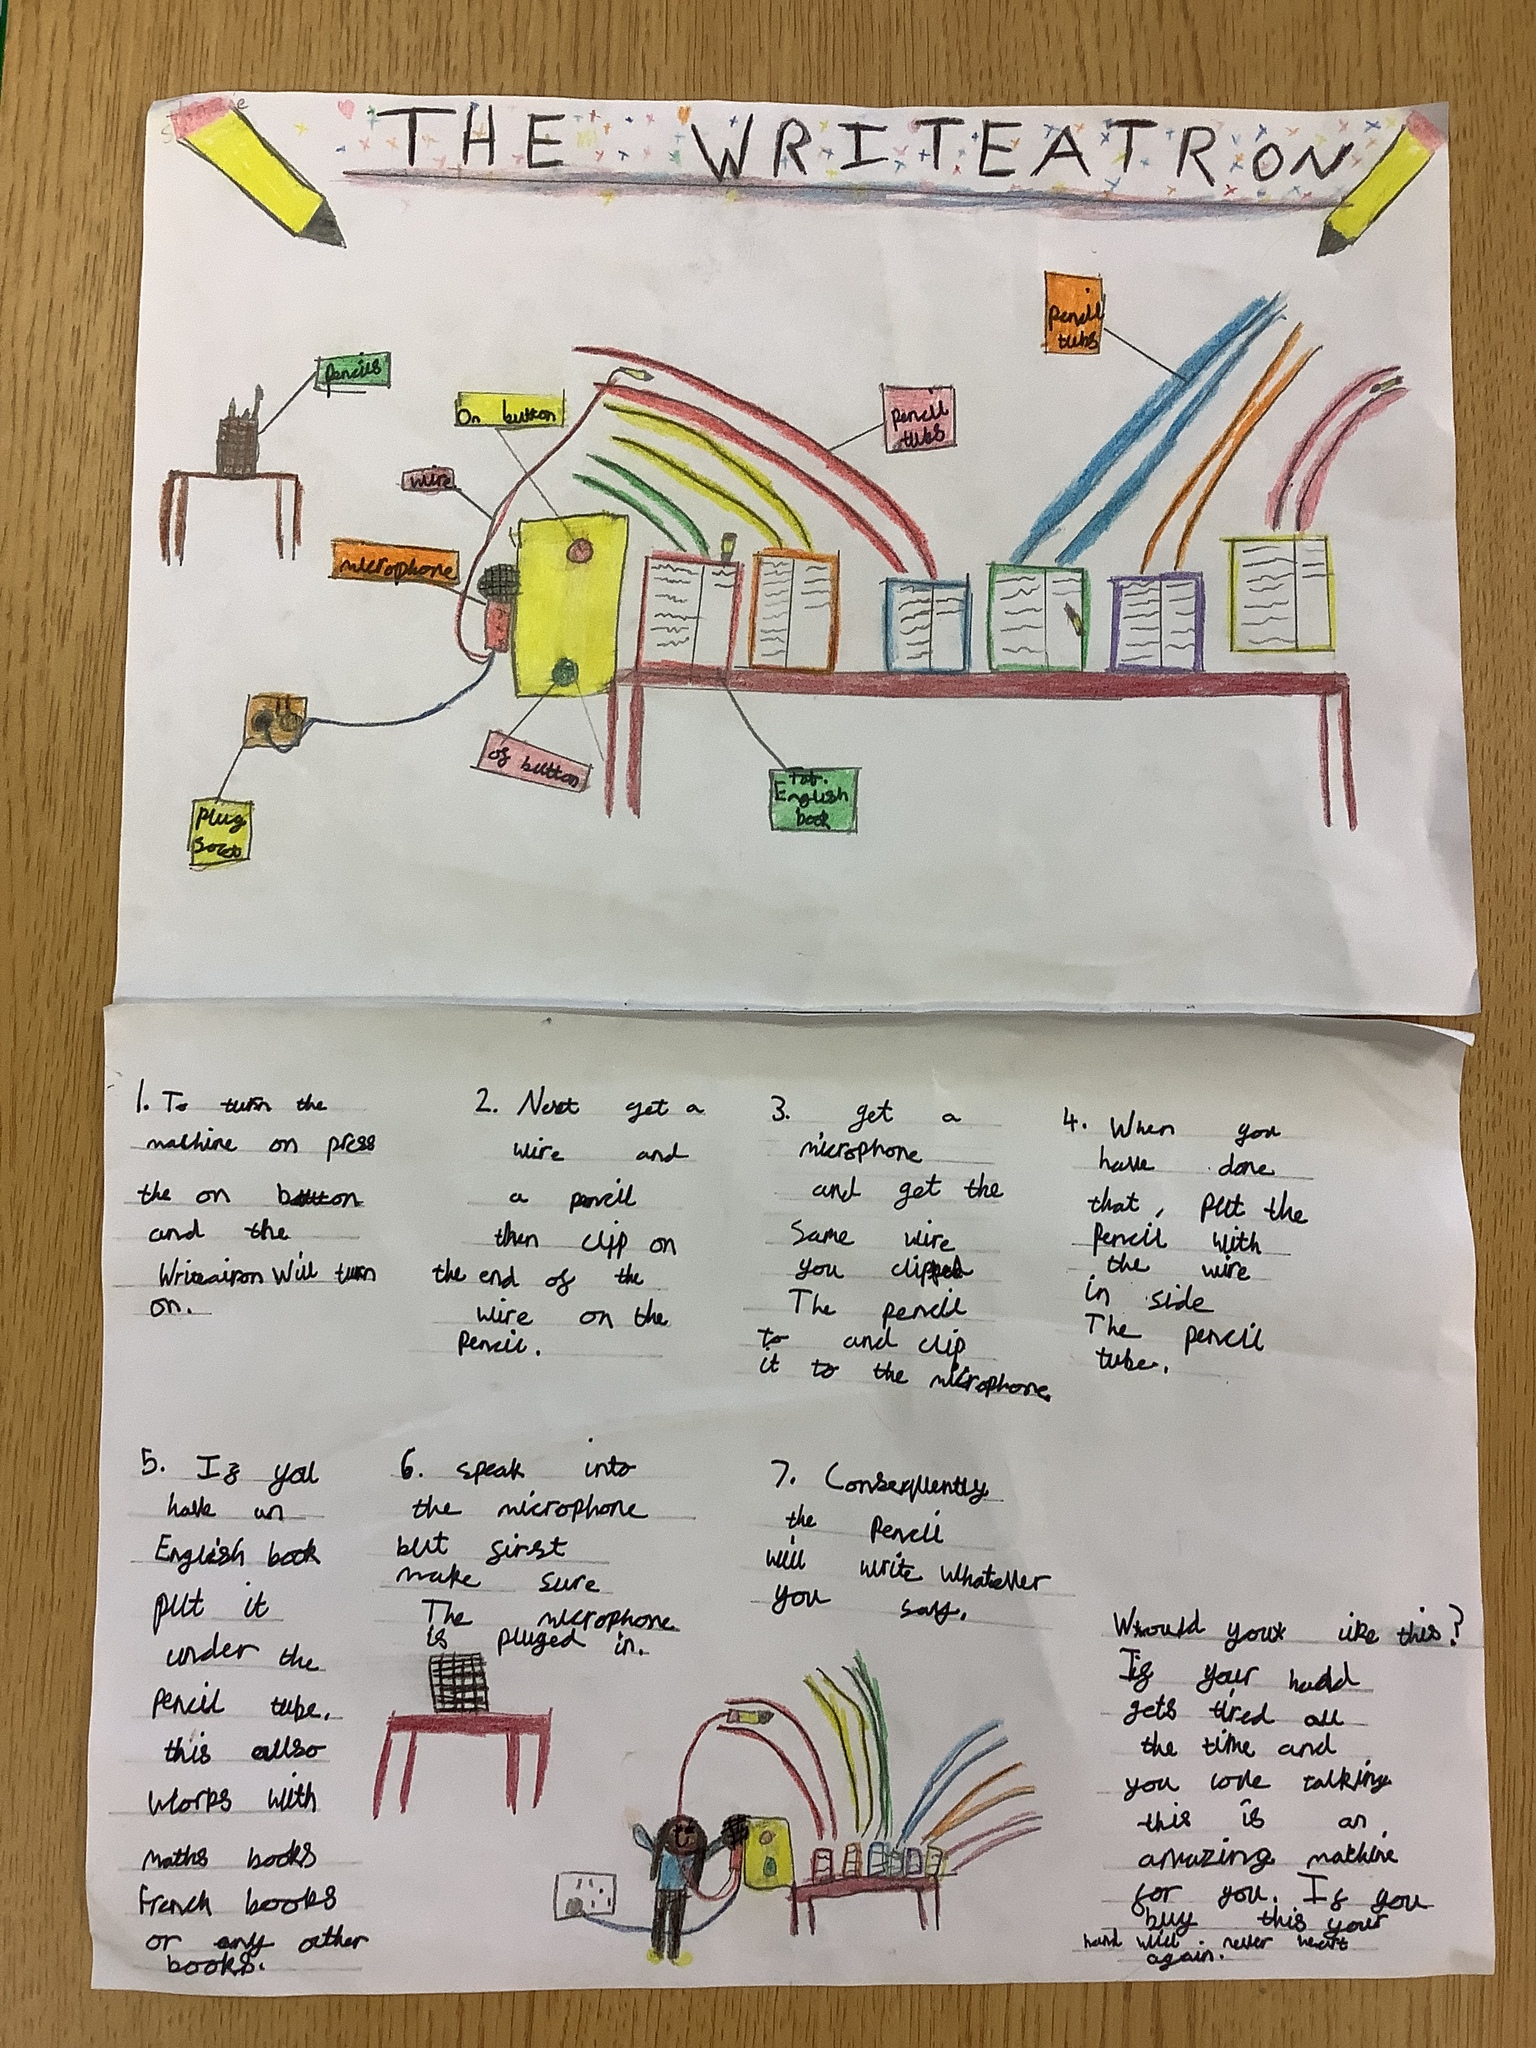 THE WRITEATRON
pencils
On button
wire
microphone
pencil
tubs
pencil
tubs
of button
plug
English
book
1. To turn the
machine on press
the on button
and the
Writeatron Will turn
on.
2. Next get a
wire and
a pencil
then clip on
the end of the
wire on the
Pencil.
3. get a
microphone
and get the
Same wire
you clipped
The pencil
to and clip
it to the microphone.
4. When you
have done
that, put the
Pencil with
the wire
in side
The pencil
tube.
5. If you
have an
English book
put it
under the
Pencil tube.
this allso
Works with
maths books
french books
or any other
books.
6. speak into
the microphone
but first
make sure
The microphone
is pluged in.
7. Consequently
the Pencil
will write whatever
you say.
Would you like this?
If your hand
gets tired all
the time and
you love talking
this is an
amazing machine
for you. If you
buy this your
hand will never heart
again.